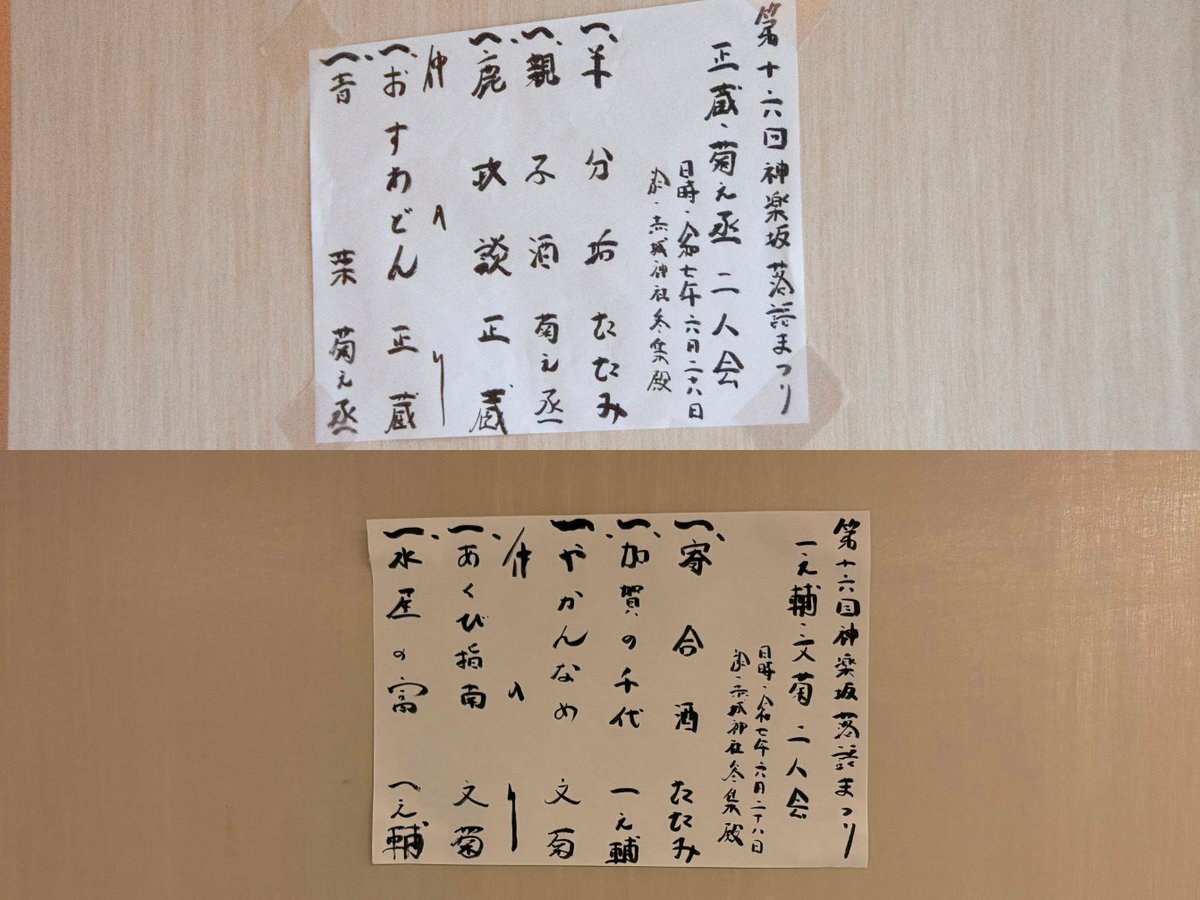 第十六回神楽坂落語まつり
正蔵、菊之丞二人会
日時・令和七年六月二十八日
於・赤城神社参集殿
一、半分垢 たたみ
一、親子酒 菊之丞
一、鹿政談 正蔵
仲入り
一、おすわどん 正蔵
一、青菜 菊之丞
第十六回神楽坂落語まつり
一之輔・文菊二人会
日時・令和七年六月二十八日
於・赤城神社参集殿
一、寄合酒 たたみ
一、加賀の千代 一之輔
一、やかんなめ 文菊
仲入り
一、あくび指南 文菊
一、水屋の富 一之輔